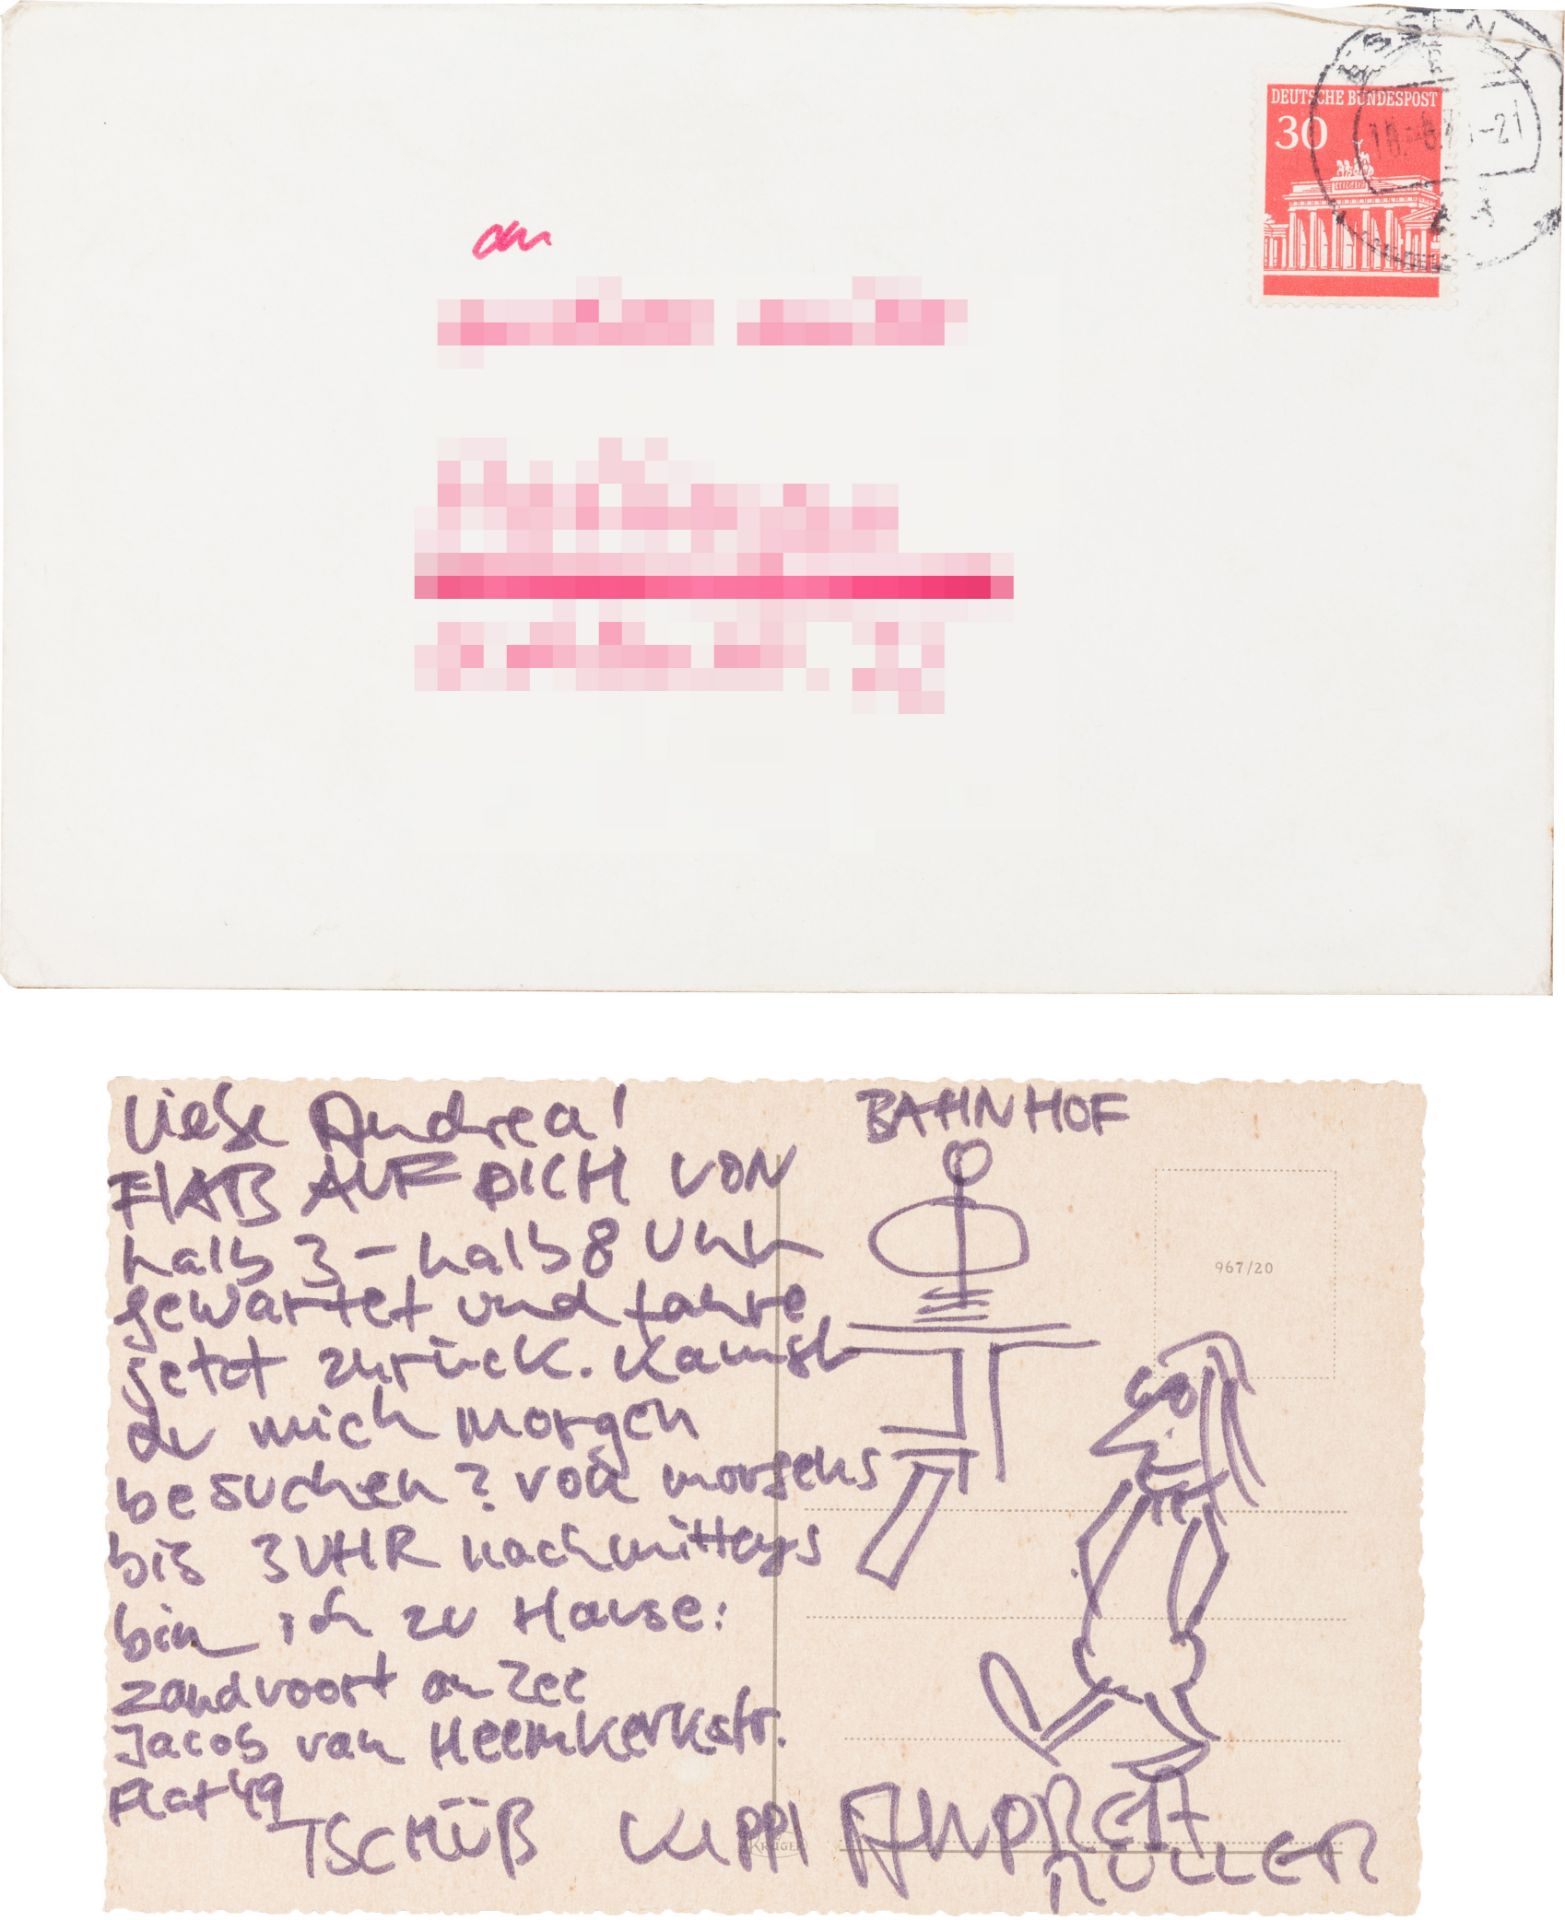 ESSEN 1
DEUTSCHE BUNDESPOST
30
an
Liebe Andrea!
HAB AUF DICH VON
halb 3 - halb 8 Uhr
gewartet und fahre
jetzt zurück. Kannst
du mich morgen
besuchen? von morgens
bis 3 UHR nachmittags
bin ich zu Hause:
Zandvoort an Zee
Jacob van Heemkerkstr.
Flat 49
TSCHÜß KIPPI
BAHNHOF
967/20
KRÜGER
ANDREA
MÜLLER